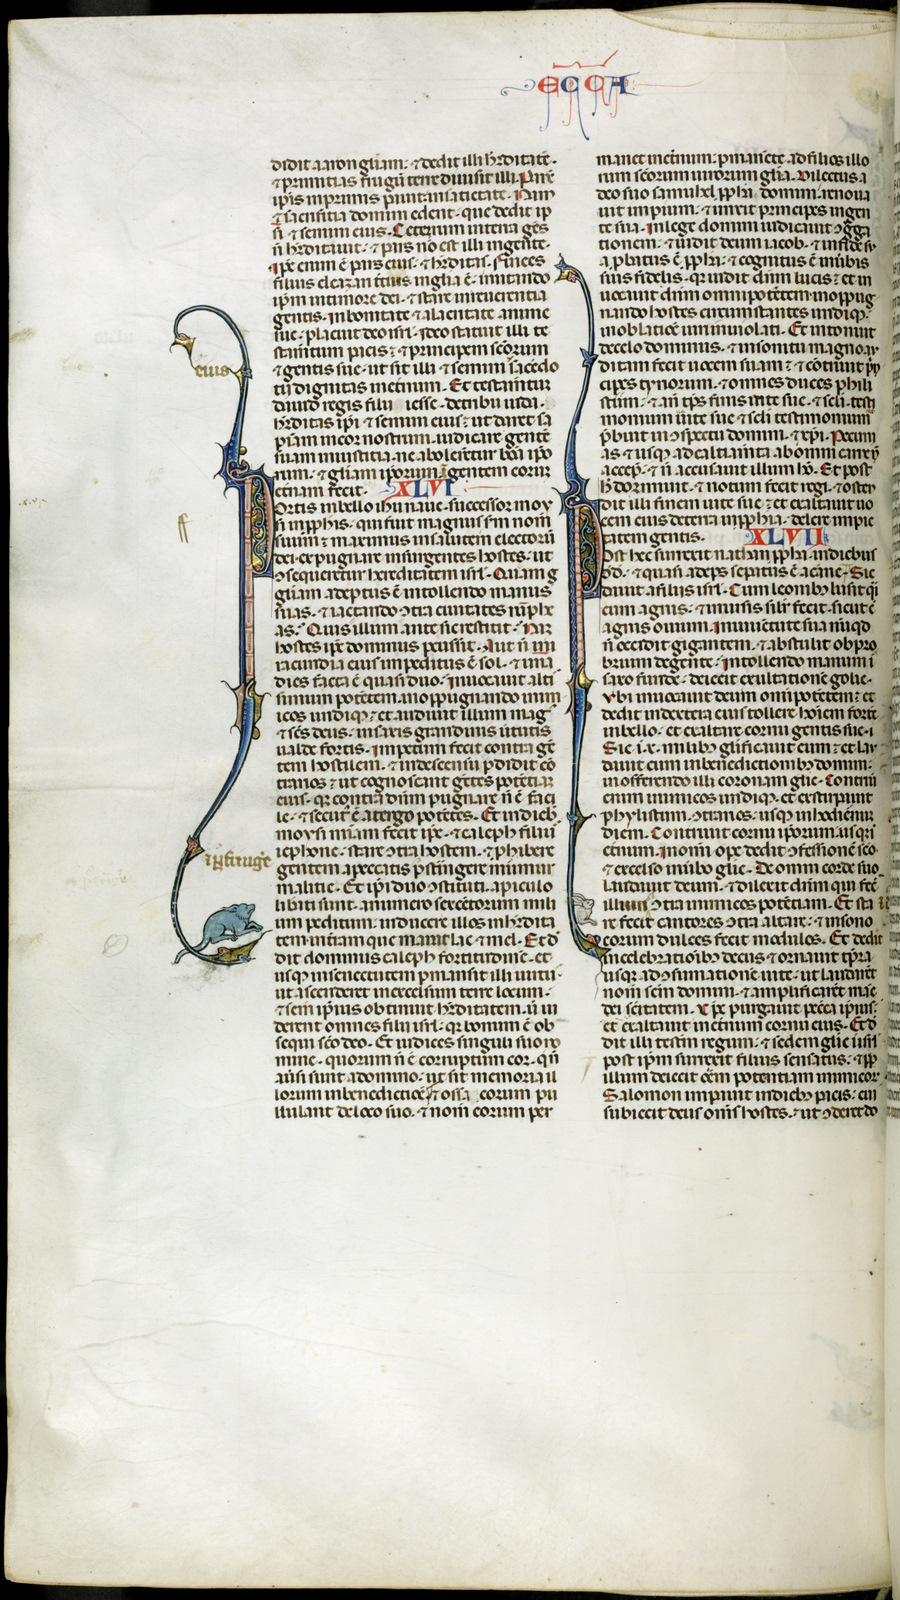 ECCA
didit aaron gl̄iam · ⁊ dedit illi h̄editatē ·
⁊ primitias frugū terre diuisit illi · Panē
ip̄is in primis parauit in satietatē · Nam
⁊ sacrificia domini edent · que dedit ip
si ⁊ semini eius · Ceterum in terra gēs
n̄ h̄editauit · ⁊ pars nō est illi in gente ·
Ip̄e enim ē pars eius · ⁊ h̄editas · finees
filius eleazari tcius in gl̄ia ē · imitando
ip̄m in timore dei · ⁊ stare in reuerentia
gentis · In bonitate ⁊ alacritate anime
sue · placuit deo isrl · Ideo statuit illi te
stamtum pacis · ⁊ principem sc̄orum
eius
⁊ gentis sue · ut sit illi ⁊ semini sacerdo
tii dignitas in et̄num · Et testam̄tum
dauid regis filii iesse · de tribu iuda ·
h̄editas ip̄i ⁊ semini eius · ut daret sa
p̄iam in cor nostrum · iudicare gentē
suam in iustitia · ne abolerētur bōa ipo
rum · ⁊ gl̄iam ip̄orum ī gentem eorum
et̄nam fecit · XLVI
Fortis in bello ih̄u naue · successor moy
si in p̄phis · qui fuit magnus s̄m nom̄
suum · ⁊ maximus in salutem electorū
dei · expugnare insurgentes hostes · ut
ↄsequeretur hereditatem isrl · Quam
gl̄iam adeptus ē in tollendo manus
suas · ⁊ iactando ↄtra ciuitates rūphe
as · Quis illum ante sic restitit · Nam
hostes ip̄e dominus p̄cussit · Aut n̄ in
iracundia eius impeditus ē sol · ⁊ una
dies facta ē quasi duo · Inuocauit alti
simum potētem · in oppugnando inim
icos undiq̄ · ⁊ audiuit illum mag
⁊ sc̄s deus · in saxis grandinis uirtutis
ualde fortis · Impetum fecit contra gē
tem hostilem · ⁊ in descensu p̄didit cō
trarios · ⁊ ut cognoscant gētes potētiam
eius · q̄ contra dn̄m pugnare n̄ ē faci
le · ⁊ secut̄ ē a tergo potētes · Et in dieb̄
moysi miām fecit ip̄e · ⁊ caleph filius
iephone · stare ↄtra hostem · ⁊ p̄hibere
gentem a peccatis · p̄stingere murmur
⁊ p̄fringe
malitie · Et ip̄i duo ↄstituti · a piculo
libati sunt · a numero sexcētorum mili
um peditum · inducere illos in h̄edita
tem · in tram que manat lac ⁊ mel · Et d
dit dominus caleph fortitudinē · et
usq̄ in senectutem p̄mansit illi uirtus
ut ascenderet in excelsum terre locum ·
⁊ sem̄ ip̄ius obtinuit h̄editatem · ut ui
derent omnes filii isrl · q̄ bonum ē ob
sequi sc̄o deo · Et iudices singuli suo no
mine · quorum n̄ ē corruptum cor · qn̄
au̅si sunt a domino · ut sit memoria il
lorum in benedictiōe · ⁊ ossa eorum pu
llulant de loco suo · ⁊ nom̄ eorum per
manet in et̄num · p̄manēte ad filios illo
rum sc̄orum uirorum gl̄ia · Dilectus a
deo suo samuhel p̄pha domini · renoua
uit impium · ⁊ unxit principes in gen
te sua · In lege domini iudicauit ↄgga
tionem · ⁊ uidit deum iacob · ⁊ in fide su
a p̄batus ē p̄pha · ⁊ cognitus ē in u̅bis
suis fidelis · q̄ uidit dn̄m lucis · et in
uocauit dn̄m omnipotētem · in oppug
nando hostes circumstantes undiq̄ ·
in oblatiōe uiri inuiolati · Et intonuit
de celo dominus · ⁊ in sonitu magno au
ditam fecit uocem suam · ⁊ ↄtriuit p̄n
cipes tyriorum · ⁊ omnes duces phili
stiim · ⁊ an̄ tp̄s finis uite sue · ⁊ sc̄li · testi
monium uite sue ⁊ sc̄li testimonium
p̄buit in ↄspectu domini · ⁊ xp̄i · Pecuni
as ⁊ usq̄ ad calciamta ab omni carne n̄
accep̄ · ⁊ n̄ accusauit illum hō · Et post
h̄ dormiuit · ⁊ notum fecit regi · ⁊ osten
dit illi finem uite sue · et exaltauit uo
cem eius de terra in p̄phia · delere impie
tatem gentis · XLVII
Post hec surrexit nathan p̄pha · in diebus
dd · ⁊ quasi adeps sepatus ē a carne · Sic
dauit a filiis isrl · Cum leonib̄ lusit q̄i
cum agnis · ⁊ in ursis sil̄r fecit · sicut ē
agnis ouium · In iuuētute sua nūqd
n̄ occidit gigantem · ⁊ abstulit obpro
brium de gente · In tollendo manum i
saxo funde · deiecit exultationē golie ·
Vbi inuocauit deum omnipotētem · et
dedit in dextera eius tollere hoīem fortē
in bello · et exaltare cornu gentis sue · i
Sic i · x · milib̄ gl̄ificauit eum · et lau
dauit eum in benedictionib̄ domini ·
in offerendo illi coronam gl̄ie · Contriui
enim inimicos undiq̄ · et extirpauit
phylistiim · ↄtrarios · usq̄ in hodiernū
diem · Contriuit cornu ip̄orum · usq̄ i
et̄num · In om̄i ope dedit ↄfessionē sc̄o ·
⁊ excelso in u̅bo gl̄ie · De omni corde suo
laudauit deum · ⁊ dilexit dn̄m qui fec̄
illum · ⁊ ↄtra inimicos potētiam · Et sta
re fecit cantores ↄtra altare · ⁊ in sono
eorum dulces fecit modulos · Et dedit
in celebrationib̄ decus · ⁊ ornauit tp̄ra
usq̄ ad ↄsumationē uite · ut laudarēt
nom̄ sc̄m domini · ⁊ amplificarēt mane
dei sc̄itatem · Xp̄e purgauit pecc̄a ip̄ius ·
et exaltauit in et̄num cornu eius · Et d
dit illi testm̄ regum · ⁊ sedem gl̄ie i isrl
post ip̄m surrexit filius sensatus · ⁊ pp
illum deiecit oēm potentiam inimicor
Salomon imp̄auit in dieb̄ pacis · cui
subiecit deus om̄s hostes · ⁊ ut ↄderet do